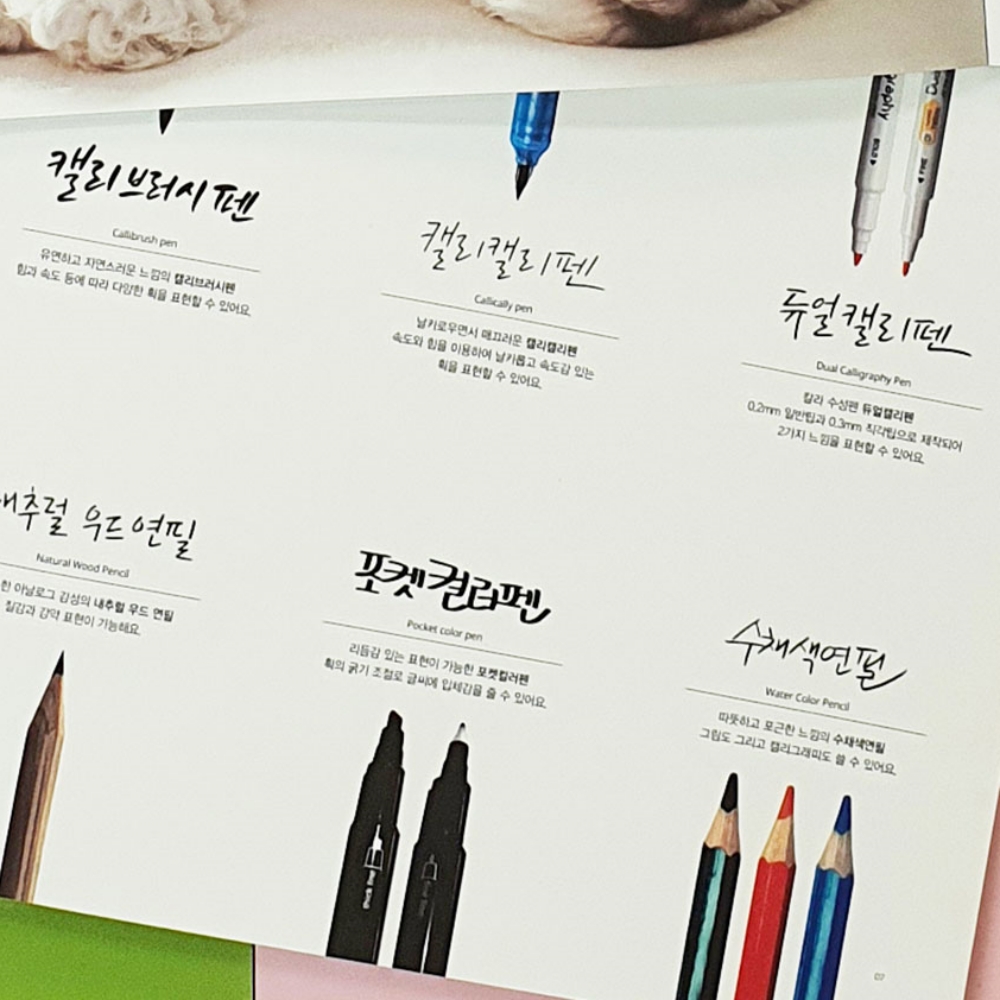 캘리브러시펜
Callibrush pen
유연하고 자연스러운 느낌의 캘리브러시펜
힘과 속도 등에 따라 다양한 획을 표현할 수 있어요.
캘리캘리펜
Callically pen
날카로우면서 매끄러운 캘리캘리펜
속도와 힘을 이용하여 날카롭고 속도감 있는
획을 표현할 수 있어요.
graphy
Dual
FINE
듀얼캘리펜
Dual Calligraphy Pen
칼라 수성펜 듀얼캘리펜
0.2mm 일반팁과 0.3mm 직각팁으로 제작되어
2가지 느낌을 표현할 수 있어요.
내추럴 우드연필
Natural Wood Pencil
한 아날로그 감성의 내추럴 우드 연필
질감과 강약 표현이 가능해요.
포켓컬러펜
Pocket color pen
리듬감 있는 표현이 가능한 포켓컬러펜
획의 굵기 조절로 글씨에 입체감을 줄 수 있어요.
수채색연필
Water Color Pencil
따뜻하고 포근한 느낌의 수채색연필
그림도 그리고 캘리그래피도 쓸 수 있어요.
07